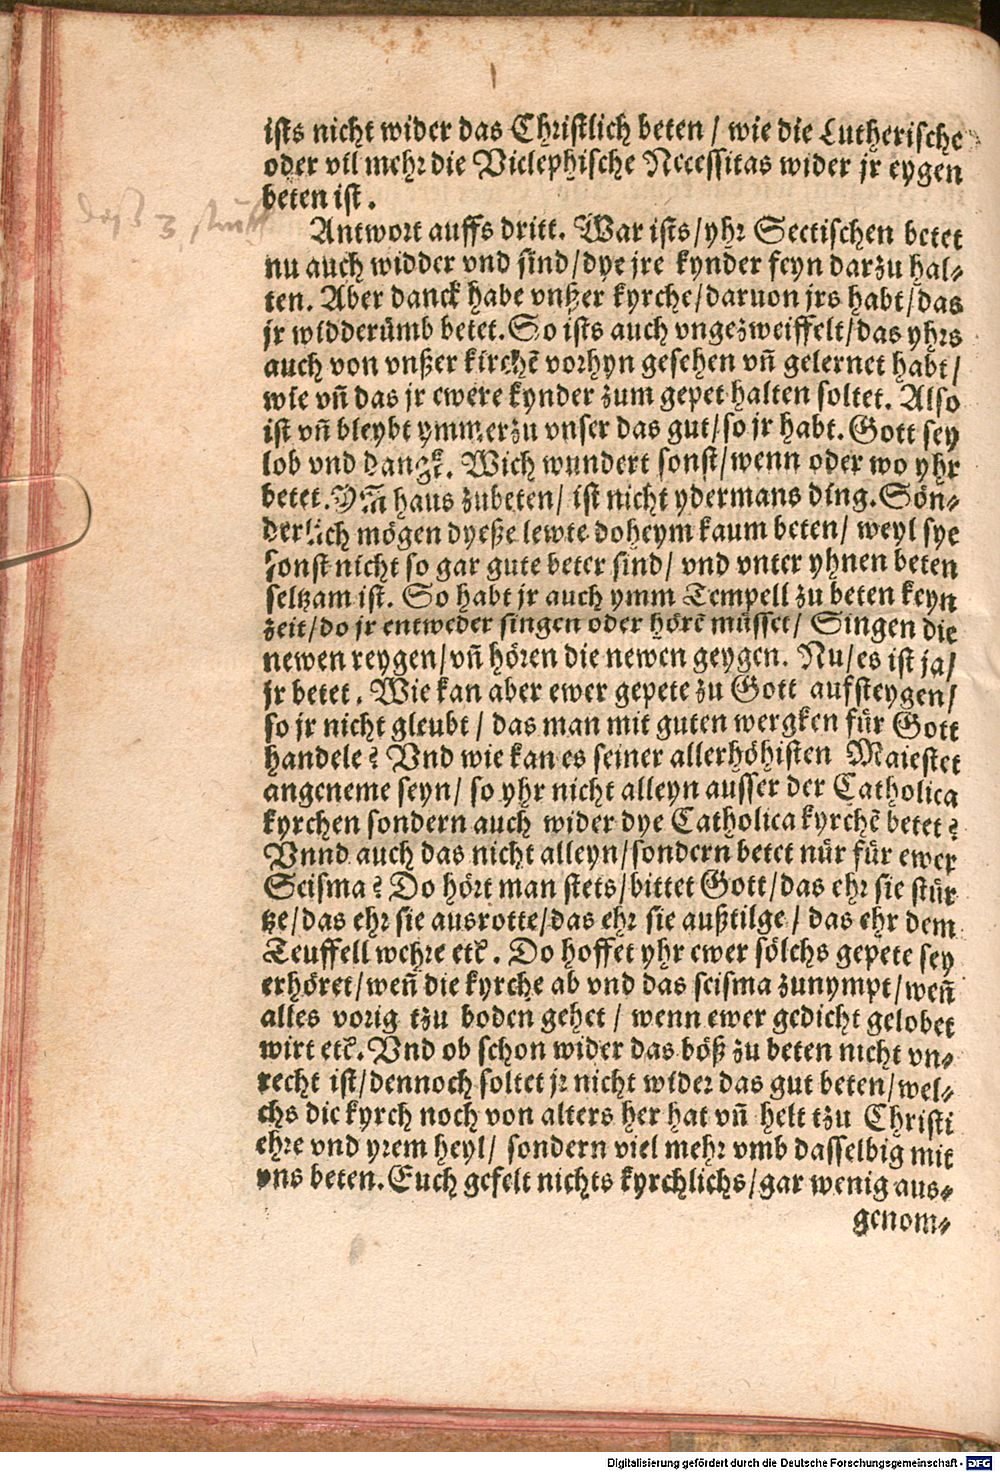 ists nicht wider das Christlich beten / wie die Lutherische
oder vil mehr die Viclephische Necessitas wider jr eygen
beten ist.
Antwort auffs dritt. War ists/yhr Sectischen betet
nu auch widder vnd sind/dye jre kynder feyn darzu hal⸗
ten. Aber danck habe vnßer kyrche/daruon jrs habt/das
jr widderümb betet. So ists auch vngezweiffelt/das yhrs
auch von vnßer kirchē vorhyn gesehen vn̄ gelernet habt/
wie vn̄ das jr ewere kynder zum gepet halten soltet. Also
ist vn̄ bleybt ymmerzu vnser das gut/so jr habt. Gott sey
lob vnd dangk. Mich wundert sonst/wenn oder wo yhr
betet. Ym̄ haus zubeten/ ist nicht ydermans ding. Sön⸗
derlich mögen dyeße lewte doheym kaum beten/ weyl sye
sonst nicht so gar gute beter sind/ vnd vnter yhnen beten
seltzam ist. So habt jr auch ymm Tempell zu beten keyn
zeit/do jr entweder singen oder hörē müsset/ Singen die
newen reygen/vn̄ hören die newen geygen. Nu/es ist ja/
jr betet. Wie kan aber ewer gepete zu Gott aufsteygen/
so jr nicht gleubt / das man mit guten wergken für Gott
handele? Vnd wie kan es seiner allerhöhisten Maiestet
angeneme seyn/ so yhr nicht alleyn ausser der Catholica
kyrchen sondern auch wider dye Catholica kyrchē betet?
Vnnd auch das nicht alleyn/sondern betet nür für ewer
Scisma? Do hört man stets/bittet Gott/das ehr sie stür
tze/das ehr sie ausrotte/das ehr sie außtilge / das ehr dem
Teuffell wehre etc̄. Do hoffet yhr ewer sölchs gepete sey
erhöret/wen̄ die kyrche ab vnd das scisma zunympt/wen̄
alles vorig tzu boden gehet / wenn ewer gedicht gelobet
wirt etc̄. Vnd ob schon wider das böß zu beten nicht vn⸗
recht ist/dennoch soltet jr nicht wider das gut beten/wel⸗
chs die kyrch noch von alters her hat vn̄ helt tzu Christi
ehre vnd yrem heyl/ sondern viel mehr vmb dasselbig mit
vns beten. Euch gefelt nichts kyrchlichs/gar wenig aus⸗
genom⸗
Digitalisierung gefördert durch die Deutsche Forschungsgemeinschaft - DFG